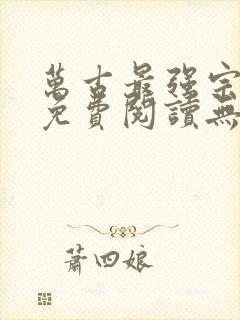 萬古最强宗
免費閱讀無
蕭四娘